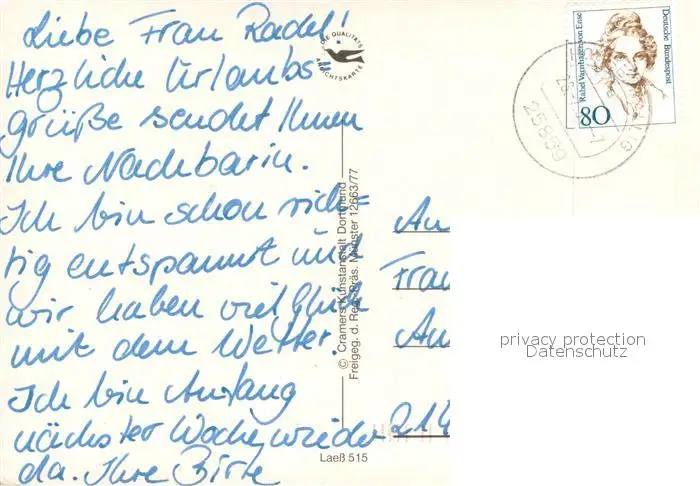 Liebe Frau Radel!
Herzliche Urlaubs=
grüße sendet Ihnen
Ihre Nachbarin.
Ich bin schon rich=
tig entspannt und
wir haben viel Glück
mit dem Wetter.
Ich bin Anfang
nächster Woche wieder
da. Ihre Birte
DIE QUALITÄTS
ANSICHTSKARTE
© Cramers Kunstanstalt Dortmund
Freigeg. d. Reg. Präs. Münster 12663/77
Laeß 515
Rahel Varnhagen von Ense
Deutsche Bundespost
80
25859
An
Frau
An
214
privacy protection
Datenschutz